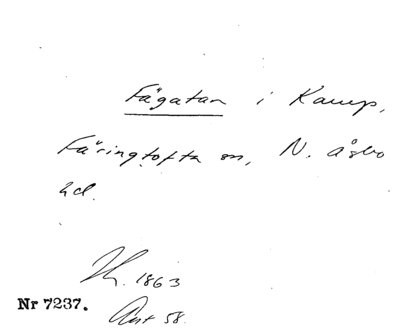 Fägatan i Kamp,
Färingtofta sn, N. Åsbo
hd.
1863
Nr 7237.
58.